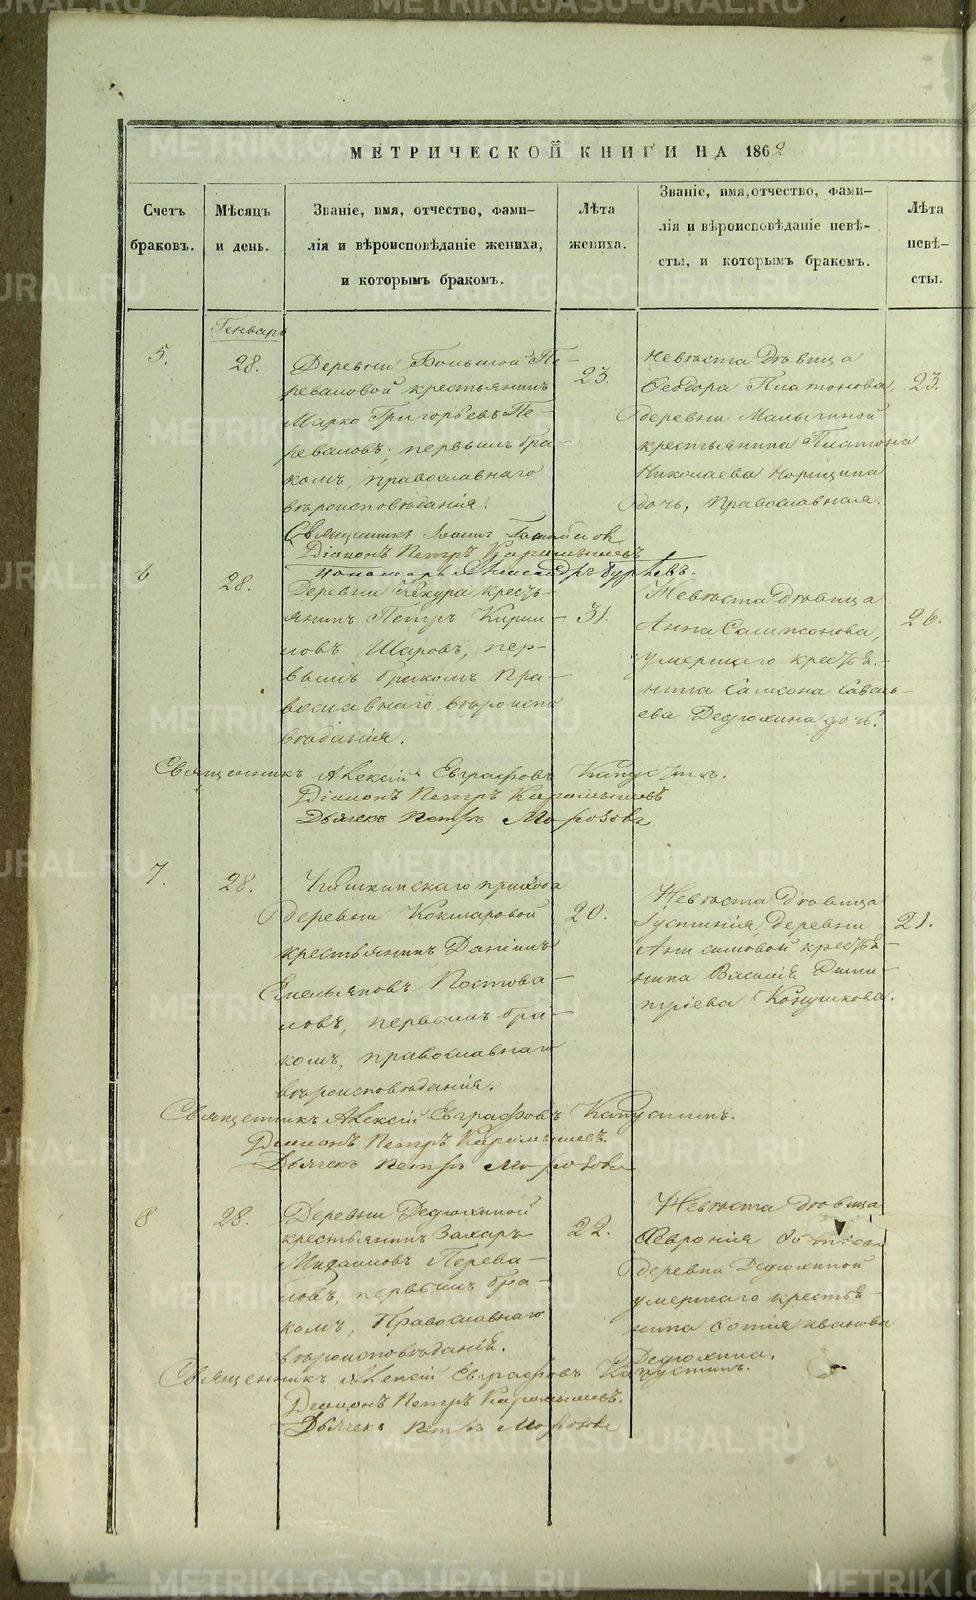 МЕТРИЧЕСКОЙ КНИГИ НА 1862
Счетъ
браковъ.
Мѣсяцъ
и день.
Званіе, имя, отчество, фами-
лія и вѣроисповѣданіе жениха,
и которымъ бракомъ.
Лѣта
жениха.
Званіе, имя, отчество, фами-
лія и вѣроисповѣданіе невѣ-
сты, и которымъ бракомъ.
Лѣта
невѣ-
сты.
Генварь
5.
28.
Деревни Большой Пе-
реваловой крестьянинъ
Марко Григорьевъ Пе-
реваловъ, первымъ бра-
комъ, православнаго
вѣроисповѣданія.
23.
Невѣста дѣвица
Ѳеодора Платонова,
деревни Малыгиной
крестьянина Платона
Николаева
дочь, православная.
23.
Священникъ Іоаннъ
Діаконъ Петръ Карамышевъ
Пономарь Александръ
6
28.
Деревни крестъ-
янинъ Петръ Кирил-
ловъ Шаровъ, пер-
вымъ бракомъ пра-
вославнаго вѣроиспо
вѣданія.
31.
Невѣста дѣвица
Анна Самсонова,
умершаго крестья-
нина Самсона Савель-
ева Дедюхина дочь.
26.
Священникъ Алексій Евграфовъ Капустинъ.
Діаконъ Петръ Карамышевъ
Дьячекъ Петръ Морозовъ
7.
28.
прихода
деревни Кокшаровой
крестьянинъ Даніилъ
Емельяновъ Постова-
ловъ, первымъ бра-
комъ, православнаго
вѣроисповѣданія.
20.
Невѣста дѣвица
Іустинія, деревни
Анисимовой крестья-
нина Василія Дими-
тріева Конушкова.
21.
Священникъ Алексій Евграфовъ Капустинъ.
Діаконъ Петръ Карамышевъ.
Дьячекъ Петръ Морозовъ
8
28.
Деревни Дедюхиной
крестьянинъ Захаръ
Михаиловъ Перева-
ловъ, первымъ бра-
комъ, Православнаго
вѣроисповѣданія.
22.
Невѣста дѣвица
Ѳевронія
деревни Дедюхиной
умершаго крестья-
нина Фотія Иванова
Дедюхина.
Священникъ Алексій Евграфовъ Капустинъ.
Діаконъ Петръ Карамышевъ.
Дьячекъ Петръ Морозовъ
METRIKI.GASO-URAL.RU